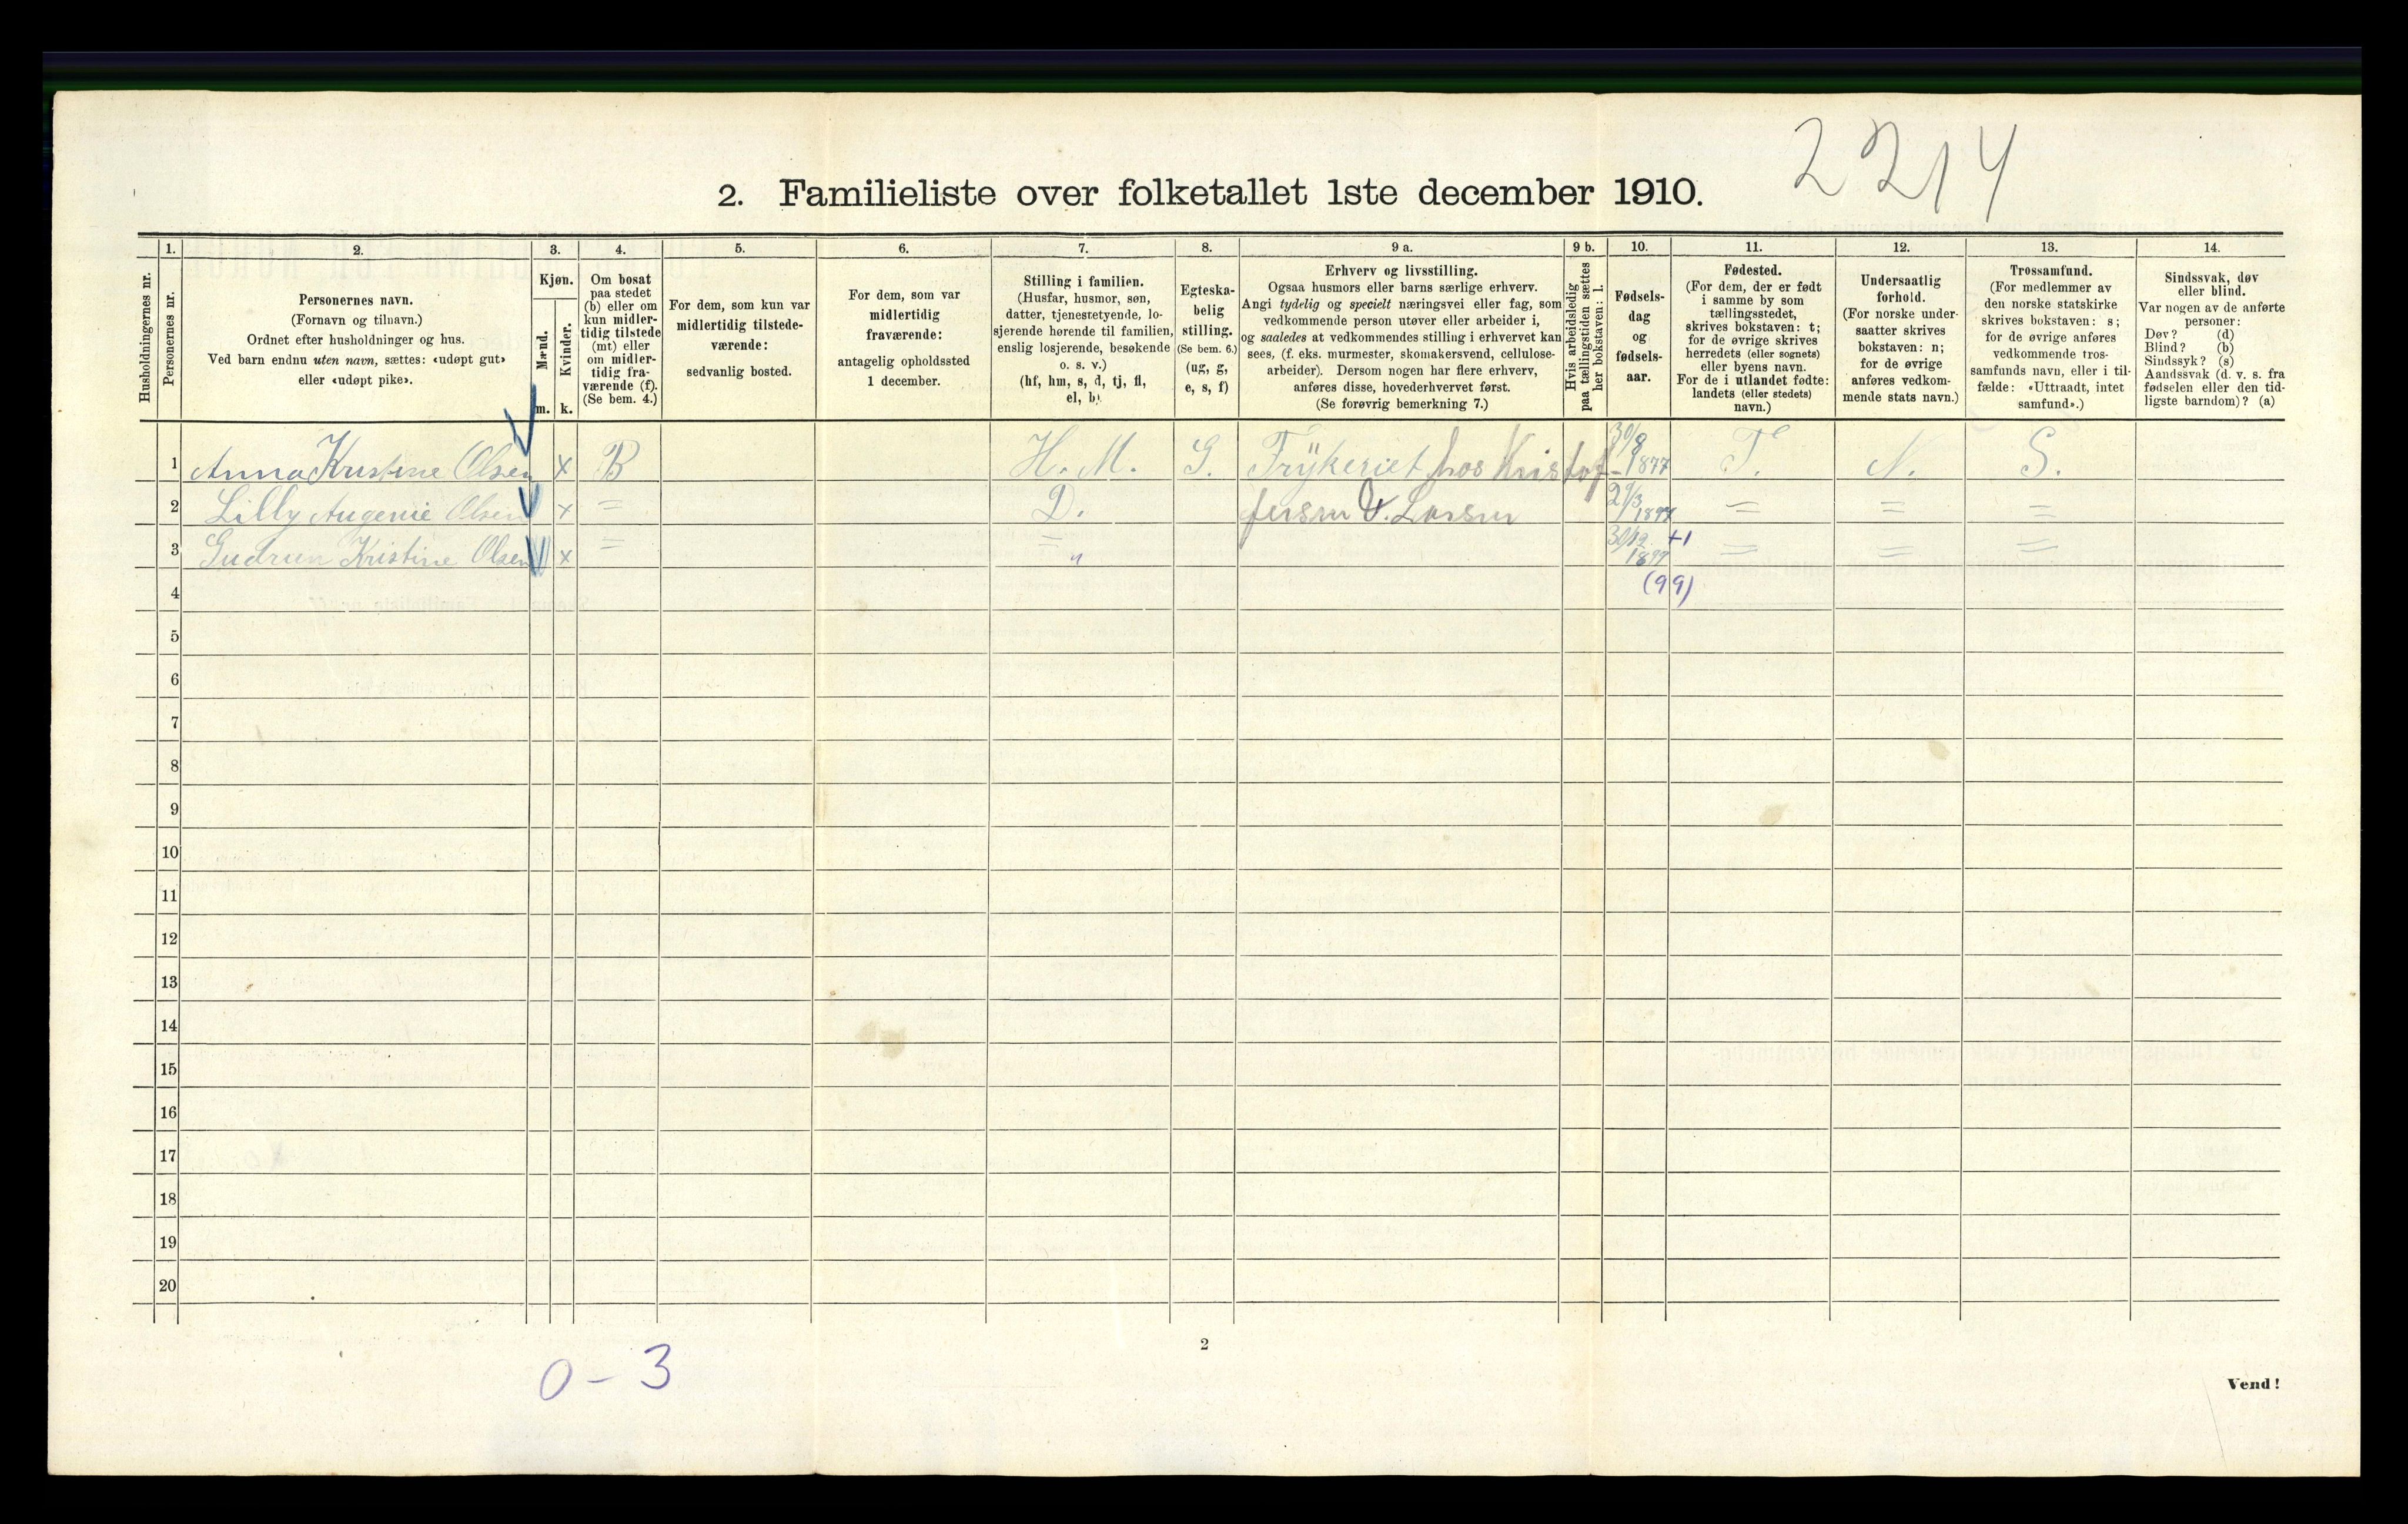 2214
2. Familieliste over folketallet 1ste december 1910.
Husholdningernes nr.
1.
Personernes nr.
2.
Personernes navn.
(Fornavn og tilnavn.)
Ordnet efter husholdninger og hus.
Ved barn endnu uten navn, sættes: «udøpt gut»
eller «udøpt pike».
3.
Kjøn.
Mænd.
Kvinder.
m. k.
4.
Om bosat
paa stedet
(b) eller om
kun midler-
tidig tilstede
(mt) eller
om midler-
tidig fra-
værende (f).
(Se bem. 4.)
5.
For dem, som kun var
midlertidig tilstede-
værende:
sedvanlig bosted.
6.
For dem, som var
midlertidig
fraværende:
antagelig opholdssted
1 december.
7.
Stilling i familien.
(Husfar, husmor, søn,
datter, tjenestetyende, lo-
sjerende hørende til familien,
enslig losjerende, besøkende
o. s. v.)
(hf, hm, s, d, tj, fl,
el, b).
8.
Egteska-
belig
stilling.
(Se bem. 6.)
(ug, g,
e, s, f)
9 a.
Erhverv og livsstilling.
Ogsaa husmors eller barns særlige erhverv.
Angi tydelig og specielt næringsvei eller fag, som
vedkommende person utøver eller arbeider i,
og saaledes at vedkommendes stilling i erhvervet kan
sees, (f. eks. murmester, skomakersvend, cellulose-
arbeider). Dersom nogen har flere erhverv,
anføres disse, hovederhvervet først.
(Se forøvrig bemerkning 7.)
9 b.
Hvis arbeidsledig
paa tællingstiden sættes
her bokstaven: l.
10.
Fødsels-
dag
og
fødsels-
aar.
11.
Fødested.
(For dem, der er født
i samme by som
tællingsstedet,
skrives bokstaven: t;
for de øvrige skrives
herredets (eller sognets)
eller byens navn.
For de i utlandet fødte:
landets (eller stedets)
navn.)
12.
Undersaatlig
forhold.
(For norske under-
saatter skrives
bokstaven: n;
for de øvrige
anføres vedkom-
mende stats navn.)
13.
Trossamfund.
(For medlemmer av
den norske statskirke
skrives bokstaven: s;
for de øvrige anføres
vedkommende tros-
samfunds navn, eller i til-
fælde: «Uttraadt, intet
samfund».)
14.
Sindssvak, døv
eller blind.
Var nogen av de anførte
personer:
Døv? (d)
Blind? (b)
Sindssyk? (s)
Aandssvak (d. v. s. fra
fødselen eller den tid-
ligste barndom)? (a)
1 Anna Kristine Olsen x B H. M. G. Trÿkeriet hos Kristof- 30/8 1877 T. N. S.
2 Lilly Augenie Olsen x = D. fersen & Larsen 29/3 1897 = = =
3 Gudrun Kristine Olsen x = = " 30/12 1899 +1 = = =
4 (99)
5
6
7
8
9
10
11
12
13
14
15
16
17
18
19
20
2
0 - 3
Vend!